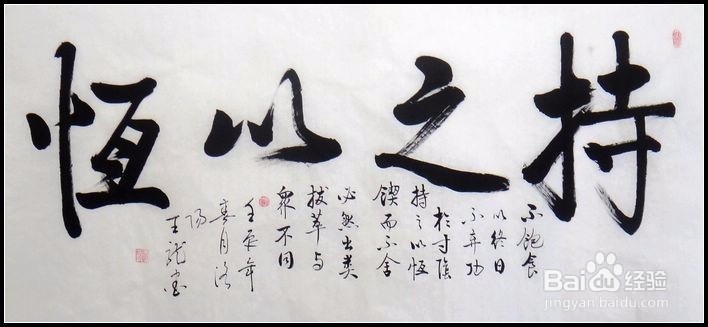 持之以恆
不飽食
以終日
不弃功
於寸陰
持之以恆
鍥而不舍
必然出类
拔萃与
眾不同
壬辰年
春月洛
陽
王
Baidu经验
jingyan.baidu.com